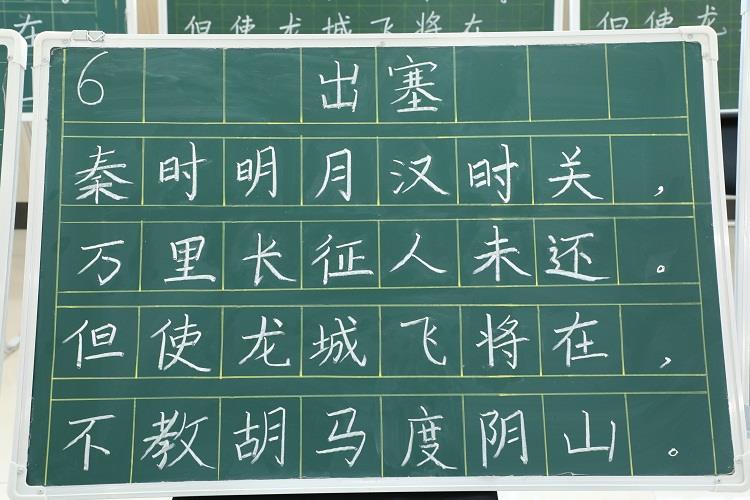 在
但使龙城飞将在
但使龙
6 出塞
秦时明月汉时关，
万里长征人未还。
但使龙城飞将在，
不教胡马度阴山。